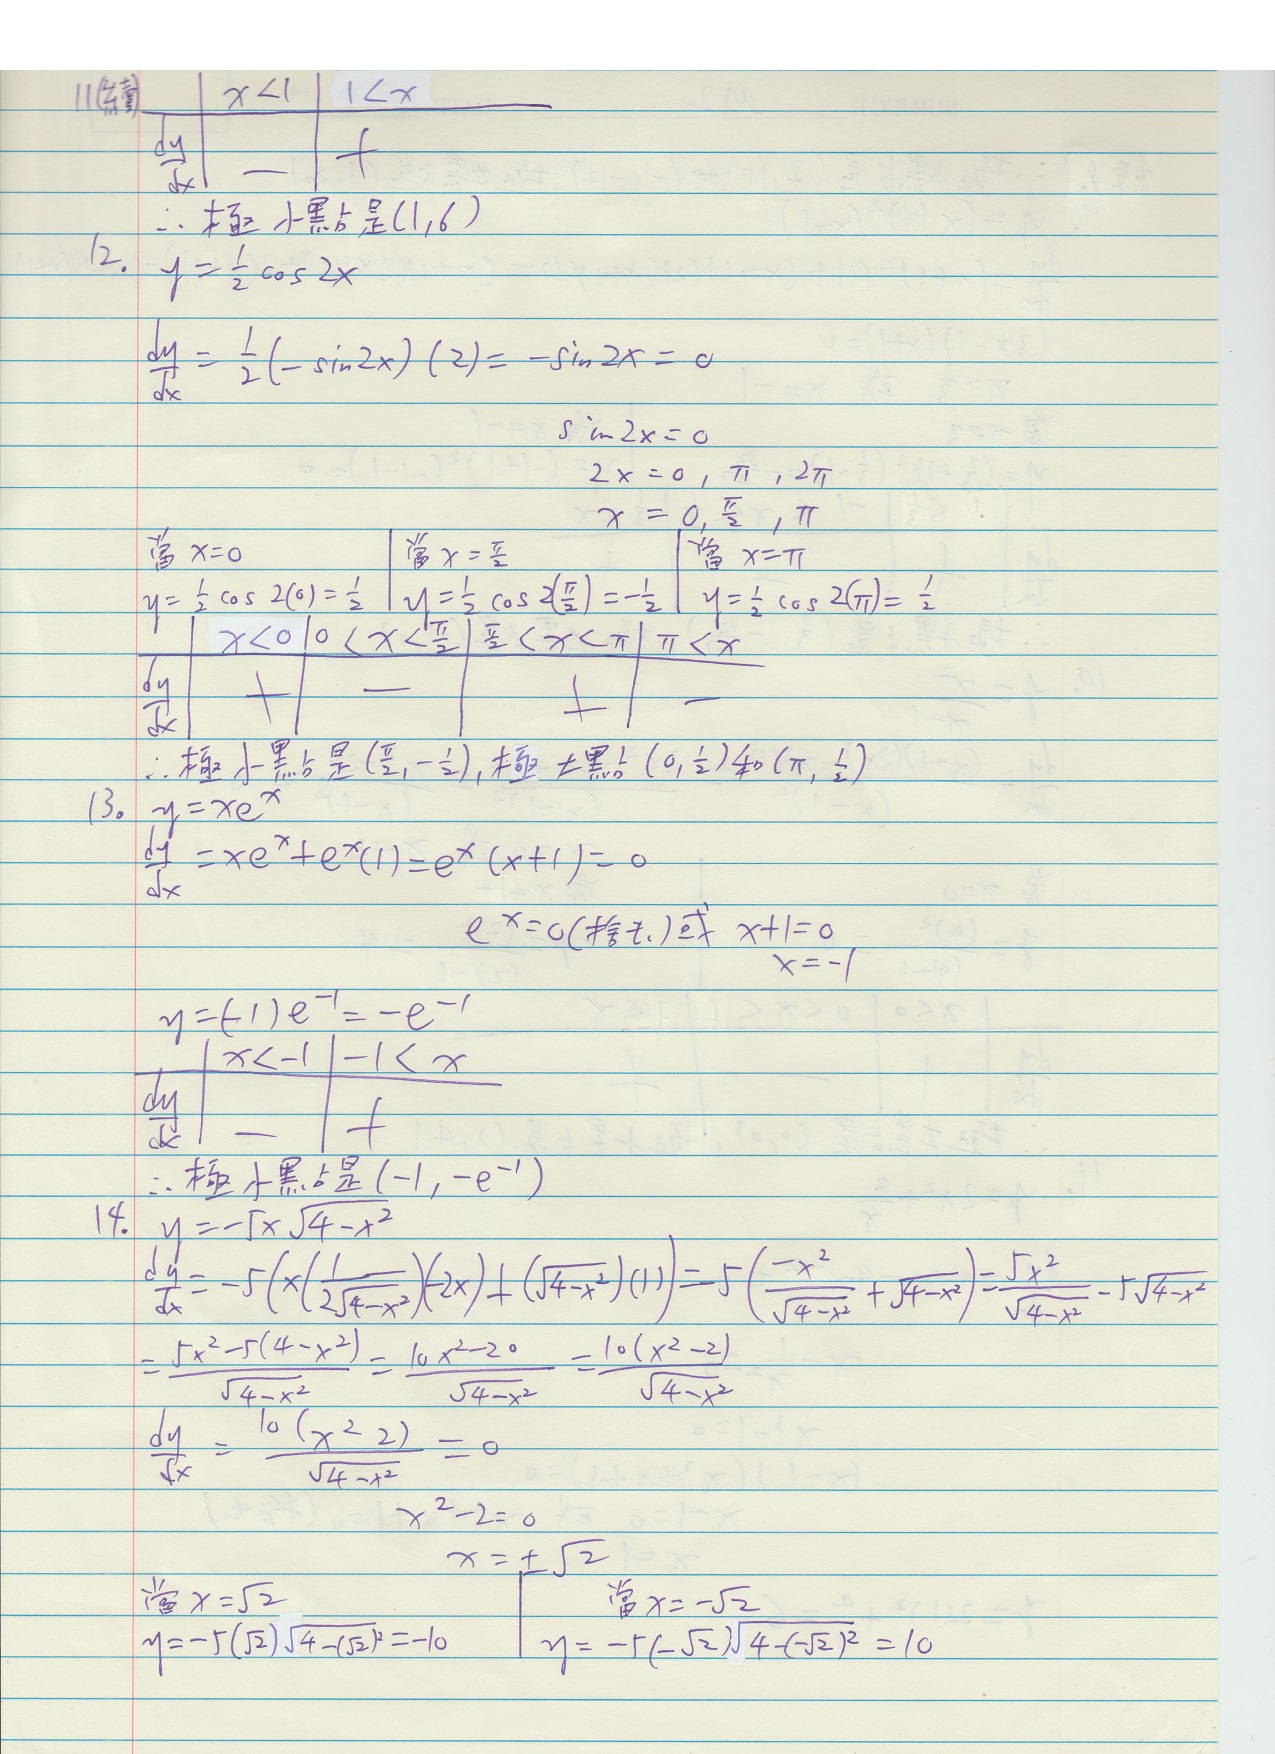 11(續) | x<1 | 1<x
dy/dx | − | +
∴極小點是(1,6)
12. y = 1/2 cos 2x
dy/dx = 1/2 (−sin2x)(2) = −sin2x = 0
sin2x = 0
2x = 0, π, 2π
x = 0, π/2, π
當 x=0 | 當 x = π/2 | 當 x=π
y = 1/2 cos 2(0) = 1/2 | y = 1/2 cos 2(π/2) = −1/2 | y = 1/2 cos 2(π) = 1/2
| x<0 | 0<x<π/2 | π/2<x<π | π<x
dy/dx | + | − | + | −
∴極小點是(π/2, −1/2), 極大點(0, 1/2)和(π, 1/2)
13. y = xe^x
dy/dx = xe^x + e^x(1) = e^x(x+1) = 0
e^x = 0(捨去)或 x+1=0
x = −1
y = (−1)e^−1 = −e^−1
| x<−1 | −1<x
dy/dx | − | +
∴極小點是(−1, −e^−1)
14. y = −5x√(4−x²)
dy/dx = −5(x(1/(2√(4−x²)))(−2x) + (√(4−x²))(1)) = −5(−x²/√(4−x²) + √(4−x²)) = 5x²/√(4−x²) − 5√(4−x²)
= (5x²−5(4−x²))/√(4−x²) = (10x²−20)/√(4−x²) = 10(x²−2)/√(4−x²)
dy/dx = 10(x² 2)/√(4−x²) = 0
x²−2=0
x = ±√2
當 x = √2 | 當 x = −√2
y = −5(√2)√(4−(√2)²) = −10 | y = −5(−√2)√(4−(−√2)²) = 10